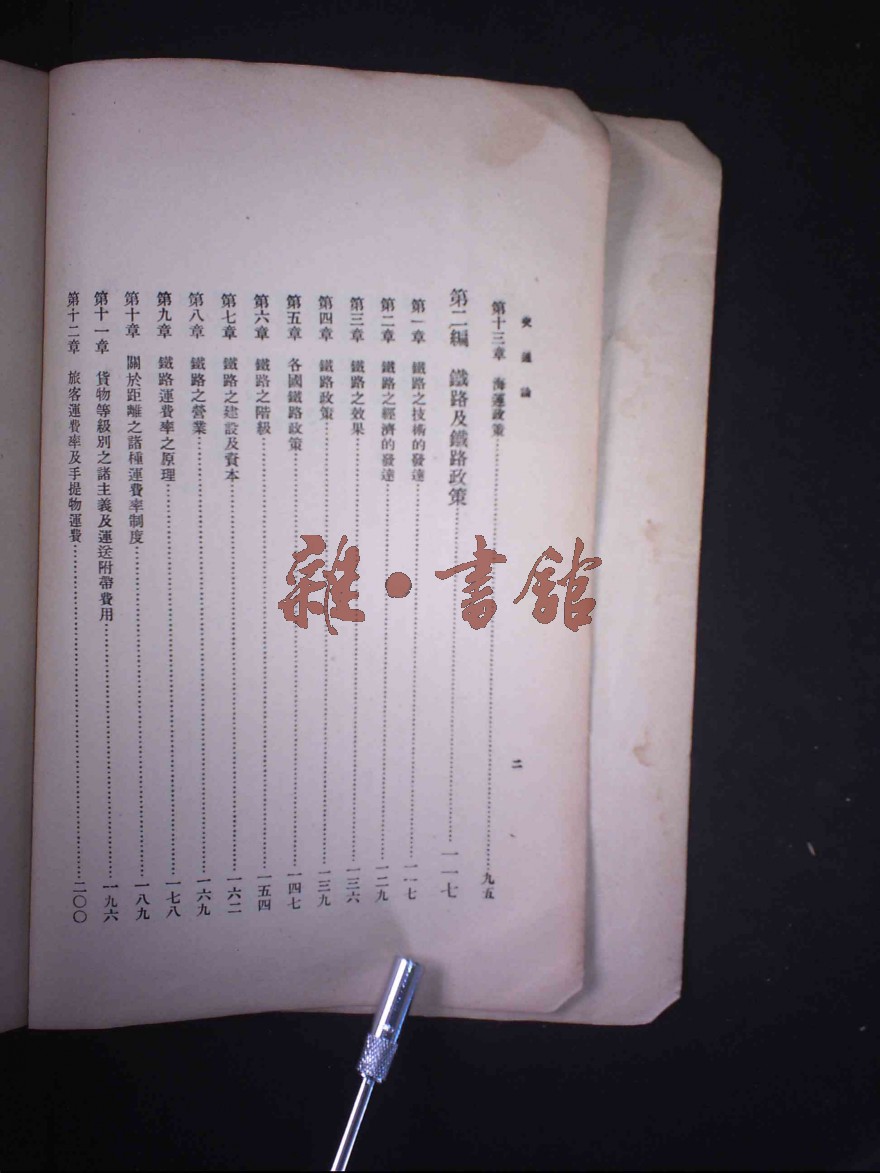 交通論
第十三章 海運政策……九五
第二編 鐵路及鐵路政策……一一七
第一章 鐵路之技術的發達……一一七
第二章 鐵路之經濟的發達……一二九
第三章 鐵路之效果……一三六
第四章 鐵路政策……一三九
第五章 各國鐵路政策……一四七
第六章 鐵路之階級……一五四
第七章 鐵路之建設及資本……一六二
第八章 鐵路之營業……一六九
第九章 鐵路運費率之原理……一七八
第十章 關於距離之諸種運費率制度……一八九
第十一章 貨物等級別之諸主義及運送附帶費用……一九六
第十二章 旅客運費率及手提物運費……二〇〇
二
雜·書館